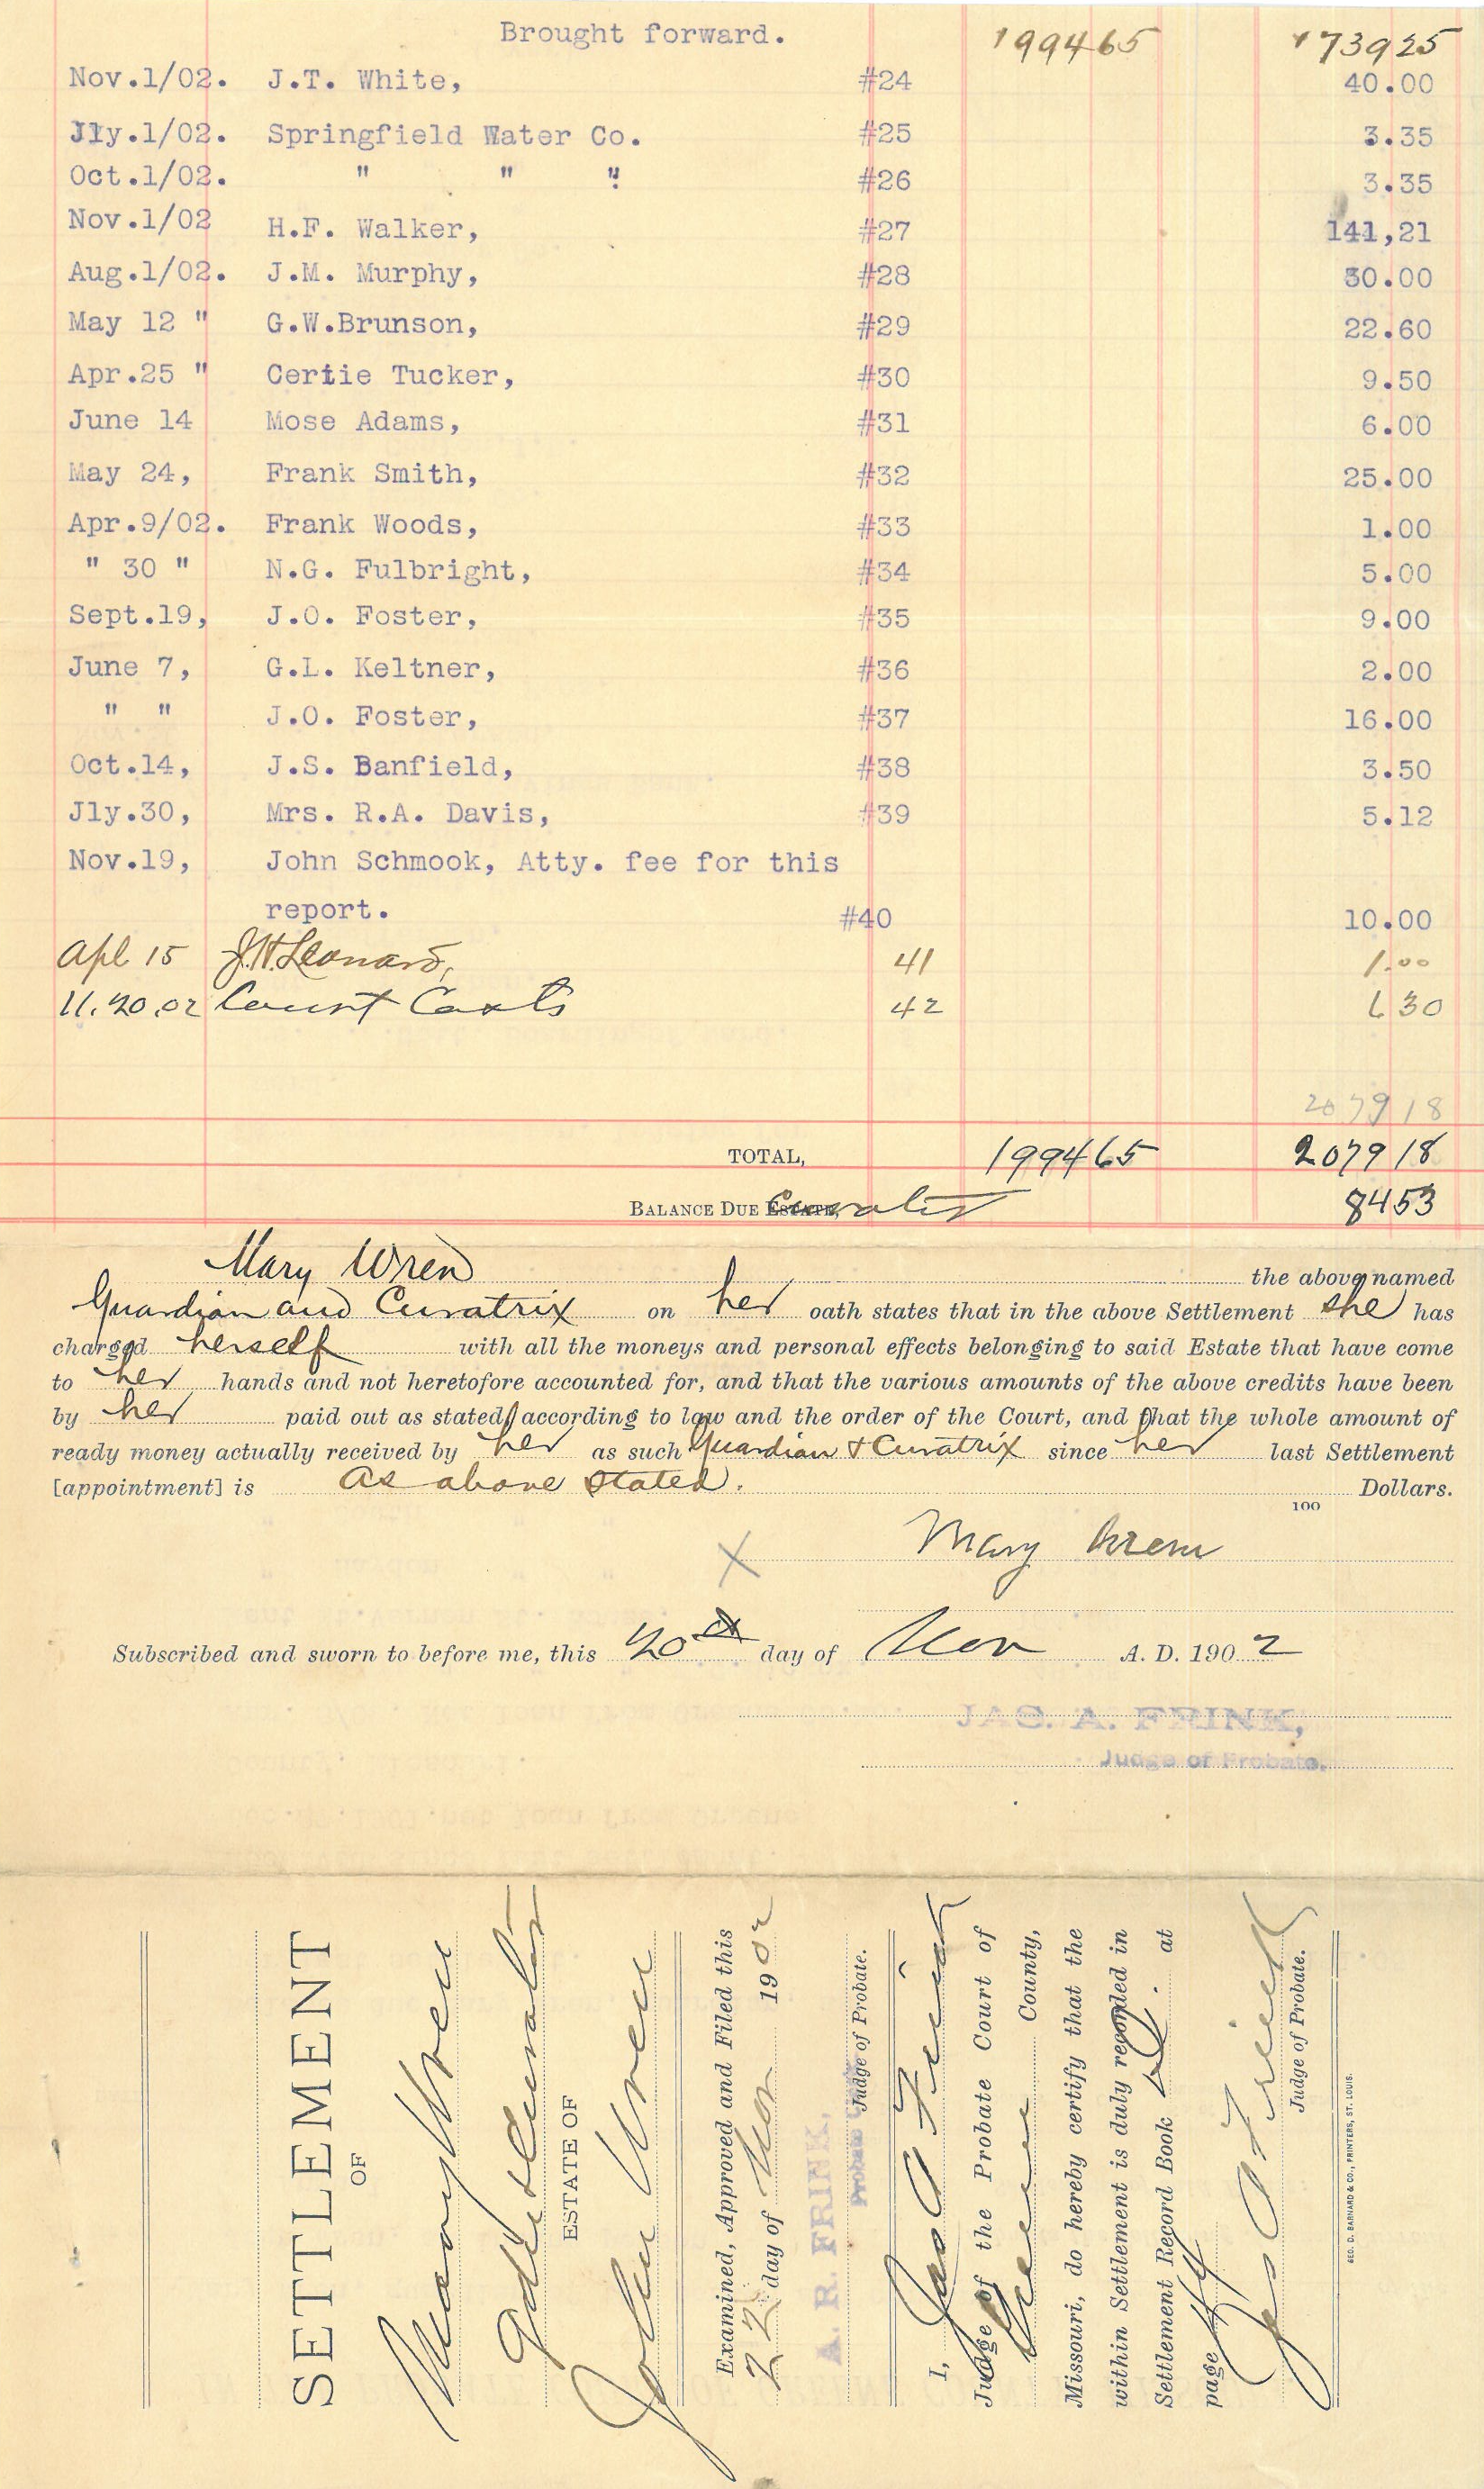 Brought forward. 199465 173925
Nov.1/02. J.T. White, #24 40.00
Jly.1/02. Springfield Water Co. #25 3.35
Oct.1/02. " " " #26 3.35
Nov.1/02 H.F. Walker, #27 141,21
Aug.1/02. J.M. Murphy, #28 30.00
May 12 " G.W.Brunson, #29 22.60
Apr.25 " Certie Tucker, #30 9.50
June 14 Mose Adams, #31 6.00
May 24, Frank Smith, #32 25.00
Apr.9/02. Frank Woods, #33 1.00
" 30 " N.G. Fulbright, #34 5.00
Sept.19, J.O. Foster, #35 9.00
June 7, G.L. Keltner, #36 2.00
" " J.O. Foster, #37 16.00
Oct.14, J.S. Banfield, #38 3.50
Jly.30, Mrs. R.A. Davis, #39 5.12
Nov.19, John Schmook, Atty. fee for this
report. #40 10.00
Apl 15 J.H. Leonard, 41 1.00
11.20.02 Court Costs 42 6 30
2079 18
TOTAL, 199465 2079 18
BALANCE DUE ESTATE, 8453
Mary Wren the above named
Guardian and Curatrix on her oath states that in the above Settlement she has
charged herself with all the moneys and personal effects belonging to said Estate that have come
to her hands and not heretofore accounted for, and that the various amounts of the above credits have been
by her paid out as stated, according to law and the order of the Court, and that the whole amount of
ready money actually received by her as such Guardian & Curatrix since her last Settlement
[appointment] is As above stated. 100 Dollars.
X Mary Wren
Subscribed and sworn to before me, this 20 day of Nov A. D. 190 2
JAS. A. FRINK,
Judge of Probate.
SETTLEMENT
OF
Mary Wren
ESTATE OF
John Wren
Examined, Approved and Filed this
22 day of Nov 1902
A. R. FRINK,
Judge of Probate.
I, Jas A Frink
Judge of the Probate Court of
Greene County,
Missouri, do hereby certify that the
within Settlement is duly recorded in
Settlement Record Book at
page
Jas A Frink
Judge of Probate.
GEO. D. BARNARD & CO., PRINTERS, ST. LOUIS.